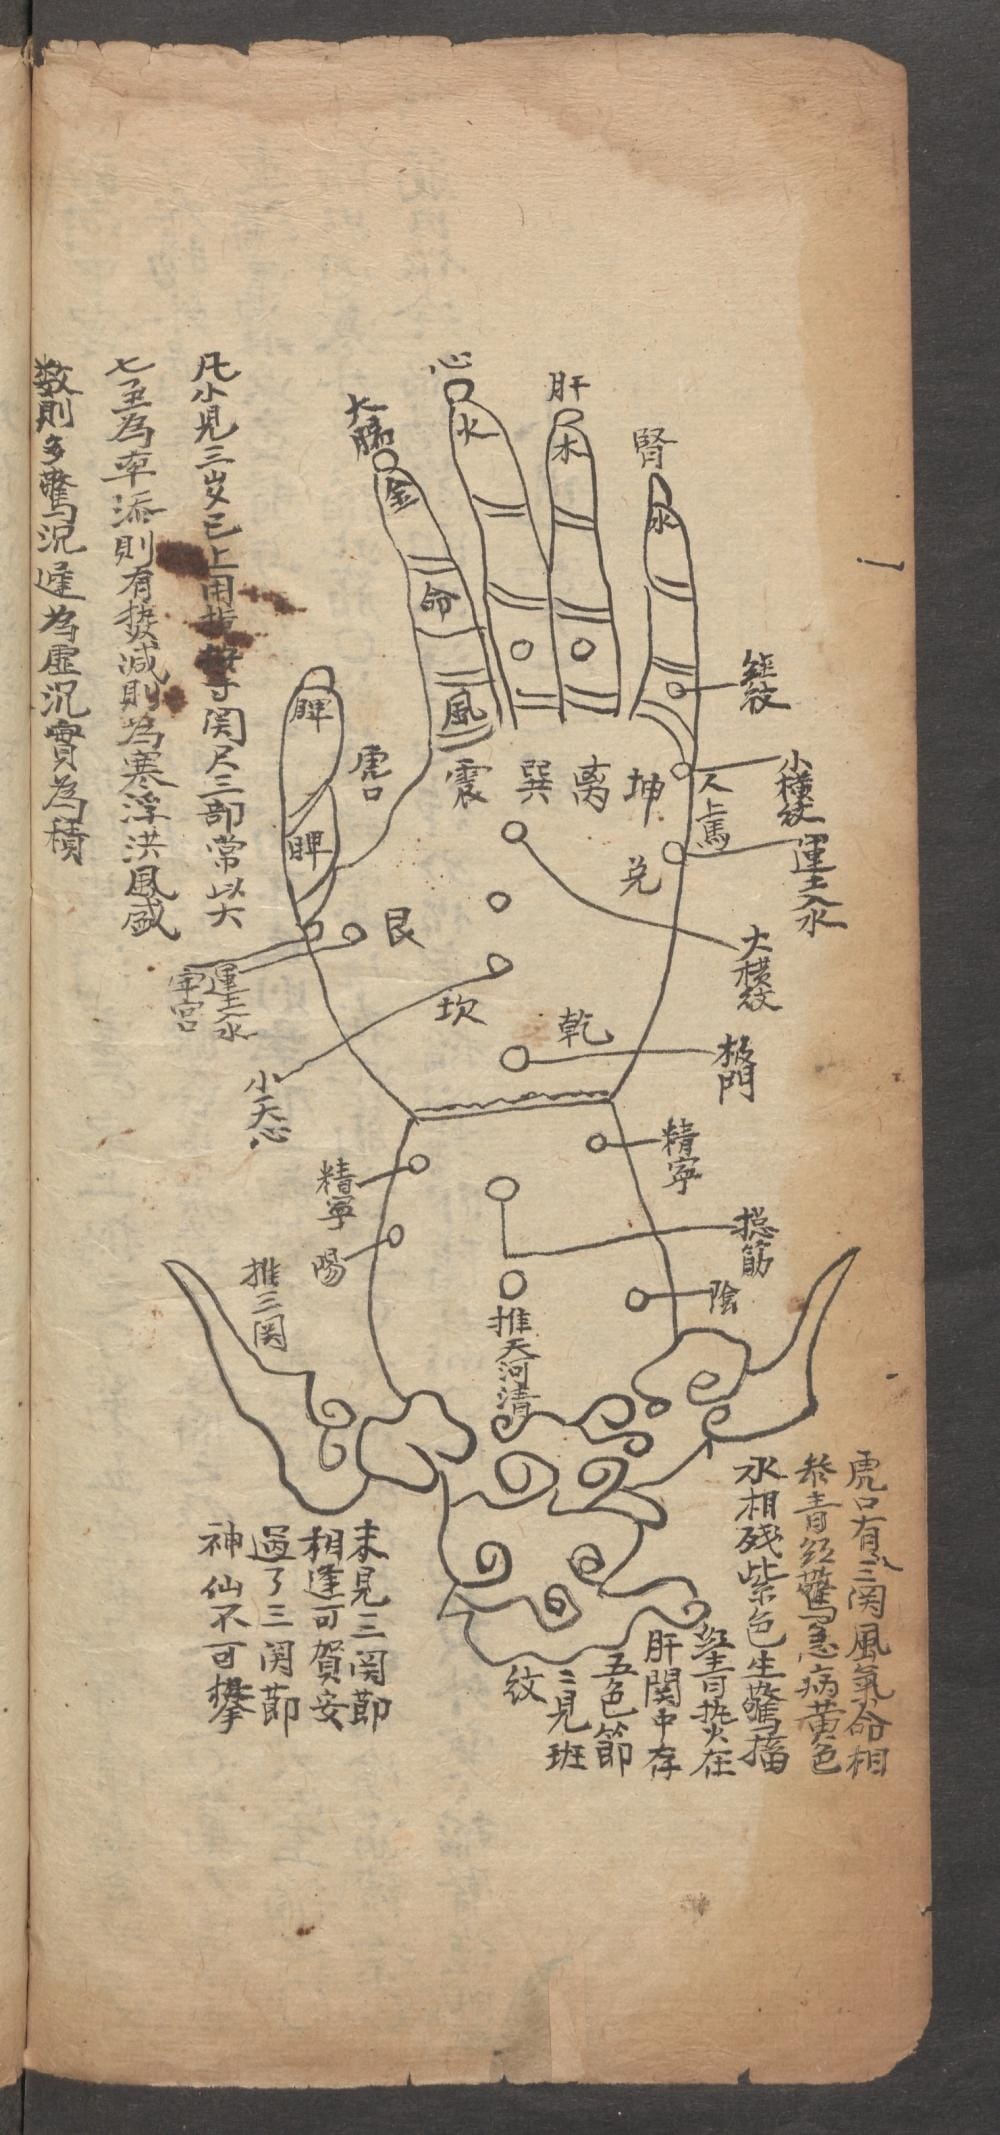 心
肝
腎
大腸
火
木
水
金
命
風
脾
脾
虎口
震
巽
离
坤
兑
艮
坎
乾
二人上馬
小橫紋
運土入水
大橫紋
板門
運土入水
宮
小天心
精寧
精寧
陽
陰
總筋
推三関
推天河清
虎口有三関風氣命相
叅青紅驚急病黄色
水相殘紫色生驚搐
紅青挑火在
肝関中存
五色節
二見班
紋
未見三関節
相逢可賀安
過了三関節
神仙不可攀
凡小兒三歲已上用指
寸関尺三部常以六
七至為率添則有热减則為寒浮洪風盛
數則多驚沉遲為虛沉實為積